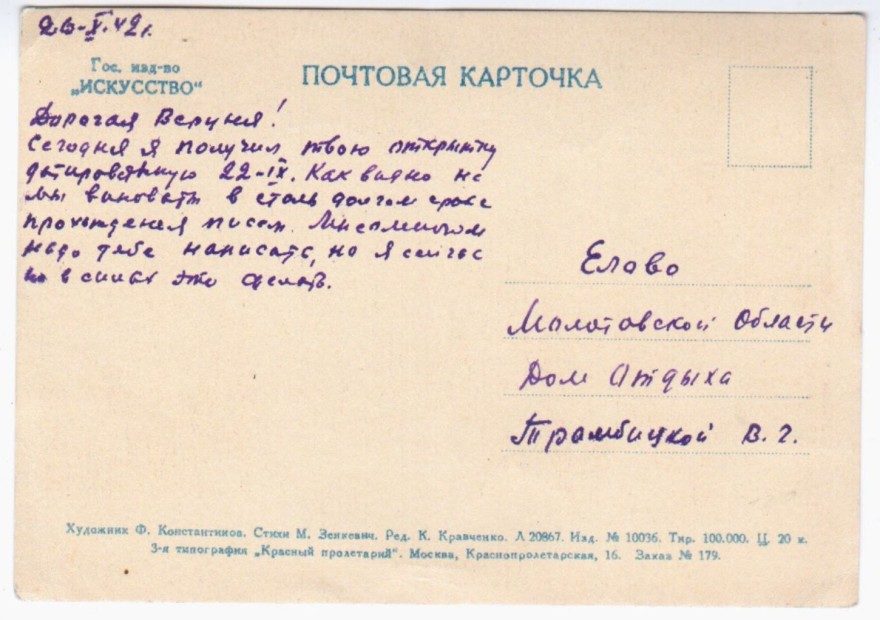 26-X.42г.
Гос. изд-во
„ИСКУССТВО“
ПОЧТОВАЯ КАРТОЧКА
Дорогая Веруня!
Сегодня я получил твою открытку
датированную 22-IX. Как видно не
мы виноваты в столь долгом сроке
прохождения писем. много
надо тебе написать, но я сейчас
не в силах это делать.
Елово
Молотовской Области
Дом Отдыха
Трамбицкой В. Г.
Художник Ф. Константинов. Стихи М. Зенкевич. Ред. К. Кравченко. Л 20867. Изд. № 10036. Тир. 100.000. Ц. 20 к.
3-я типография „Красный пролетарий“. Москва, Краснопролетарская, 16. Заказ № 179.